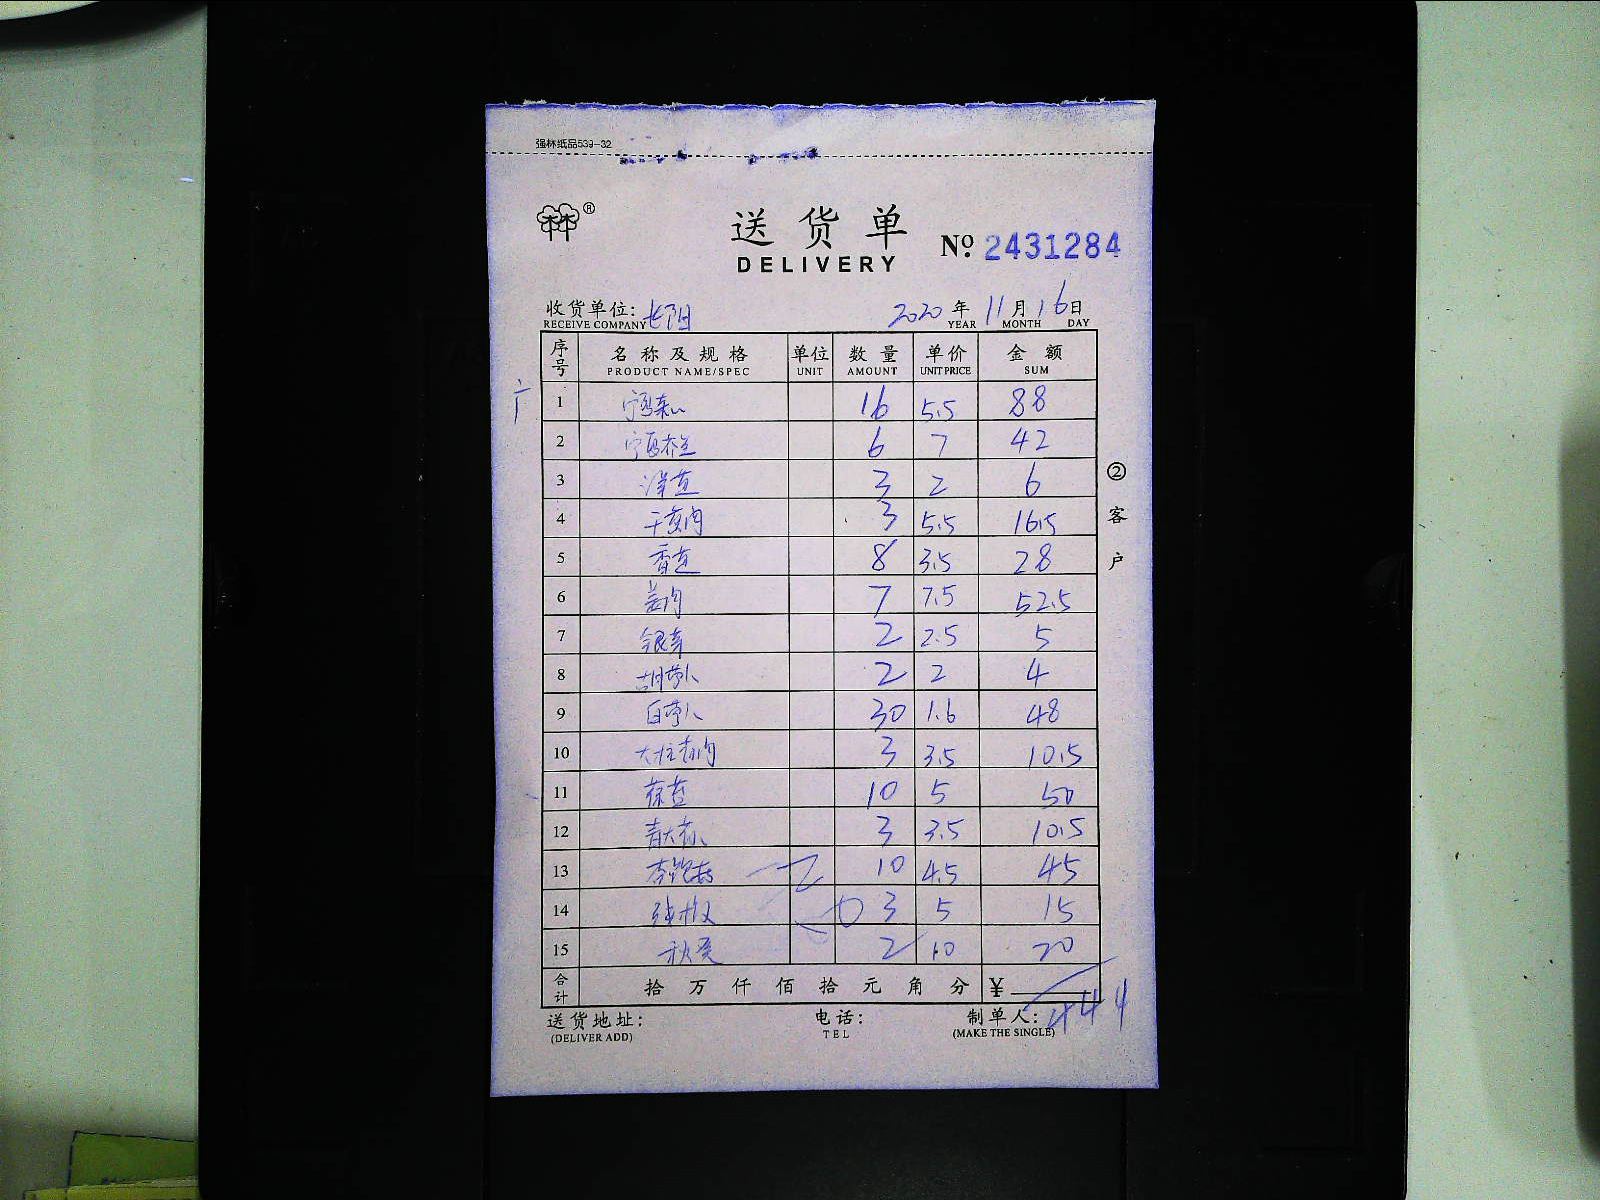 强林纸品539-32
®
送货单
DELIVERY
No. 2431284
收货单位: 长阳 2020年11月16日
RECEIVE COMPANY YEAR MONTH DAY
序号 名称及规格 单位 数量 单价 金额
PRODUCT NAME/SPEC UNIT AMOUNT UNIT PRICE SUM
1 宁夏菜心 16 5.5 88
2 宁夏芥兰 6 7 42
3 洋葱 3 2 6
4 干葱肉 3 5.5 16.5
5 香芹 8 3.5 28
6 姜肉 7 7.5 52.5
7 银芽 2 2.5 5
8 胡萝卜 2 2 4
9 白萝卜 30 1.6 48
10 3 3.5 10.5
11 10 5 50
12 3 3.5 10.5
13 10 4.5 45
14 3 5 15
15 秋葵 2 10 20
合计 拾万仟佰拾元角分 ¥ 441
送货地址: 电话: 制单人:
(DELIVER ADD) TEL (MAKE THE SINGLE)
②客户